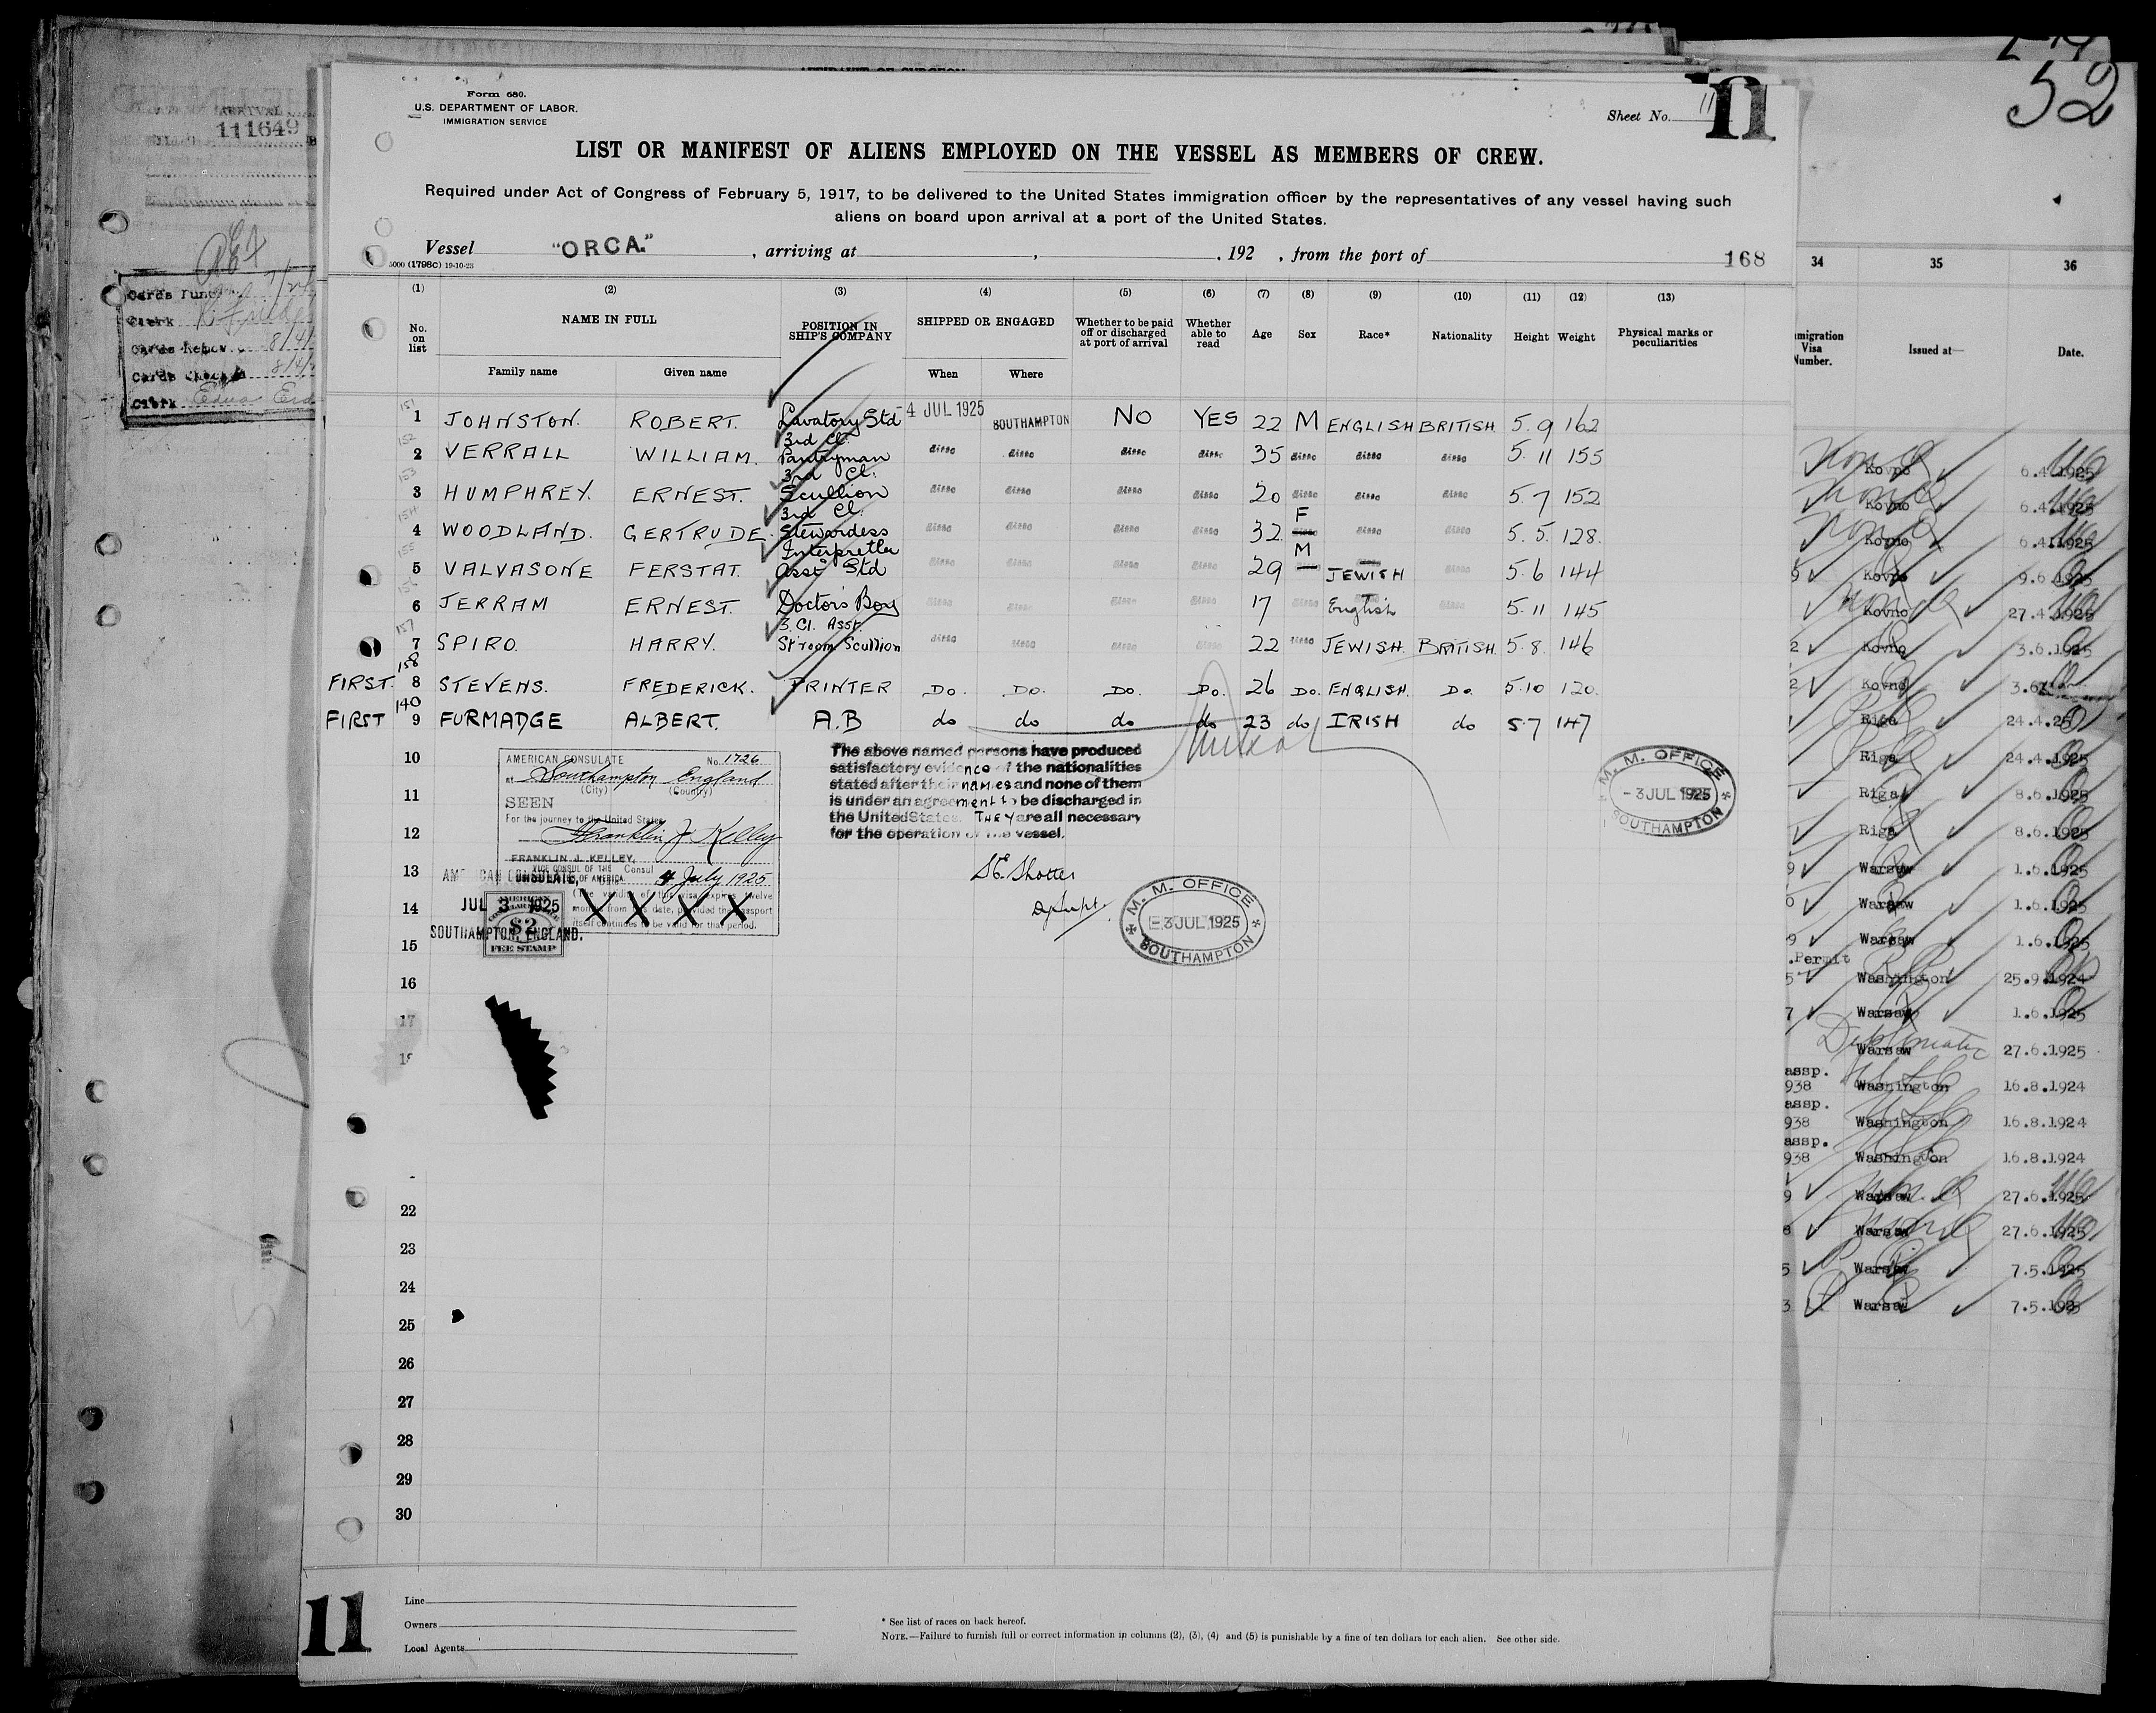 Form 680.
U.S. DEPARTMENT OF LABOR.
IMMIGRATION SERVICE
Sheet No. 11
11
52
LIST OR MANIFEST OF ALIENS EMPLOYED ON THE VESSEL AS MEMBERS OF CREW.
Required under Act of Congress of February 5, 1917, to be delivered to the United States immigration officer by the representatives of any vessel having such
aliens on board upon arrival at a port of the United States.
Vessel "ORCA." , arriving at , . 192 , from the port of 168
5000 (1798c) 19-10-23
(1) (2) (3) (4) (5) (6) (7) (8) (9) (10) (11) (12) (13)
No. on list NAME IN FULL POSITION IN SHIP'S COMPANY SHIPPED OR ENGAGED Whether to be paid off or discharged at port of arrival Whether able to read Age Sex Race* Nationality Height Weight Physical marks or peculiarities
Family name Given name When Where
151 1 JOHNSTON. ROBERT. Lavatory Std -4 JUL 1925 SOUTHAMPTON NO YES 22 M ENGLISH BRITISH 5.9 162
152 2 VERRALL WILLIAM. 3rd Cl. Pantryman ditto ditto ditto ditto 35 ditto ditto ditto 5.11 155
153 3 HUMPHREY. ERNEST. 3rd Cl. Scullion ditto ditto ditto ditto 20 ditto ditto ditto 5.7 152
154 4 WOODLAND. GERTRUDE. 3rd Cl. Stewardess ditto ditto ditto ditto 32 F ditto ditto 5.5. 128.
155 5 VALVASONE FERSTAT. Interpretter Asst Std ditto ditto ditto ditto 29 M JEWISH ditto 5.6 144
156 6 JERRAM ERNEST. Doctors Boy ditto ditto ditto ditto 17 ditto English ditto 5.11 145
157 7 SPIRO. HARRY. 3. Cl. Asst. St'room Scullion ditto ditto ditto ditto 22 ditto JEWISH. BRITISH. 5.8. 146
FIRST. 158 8 STEVENS. FREDERICK. PRINTER DO. DO. DO. DO. 26 DO. ENGLISH. DO. 5.10 120.
FIRST 140 9 FURMADGE ALBERT. A.B do do do do 23 do IRISH do 5.7 147
10
11
12
13
14
15
16
17
22
23
24
25
26
27
28
29
30
AMERICAN CONSULATE No. 1726
at Southampton England
(City) (Country)
SEEN
For the journey to the United States
Franklin J. Kelley
FRANKLIN J. KELLEY,
VICE CONSUL OF THE Consul
OF AMERICA
4 July 1925
The validity of this visa expires twelve
months from this date, provided the passport
itself continues to be valid for that period.
X X X X
JUL 3 1925
SOUTHAMPTON, ENGLAND.
$2
FEE STAMP
The above named persons have produced
satisfactory evidence of the nationalities
stated after their names and none of them
is under an agreement to be discharged in
the United States. THEY are all necessary
for the operation of the vessel.
M. M. OFFICE
-3 JUL 1925
SOUTHAMPTON
M. M. OFFICE
-3 JUL 1925
SOUTHAMPTON
11
Line
Owners
Local Agents
* See list of races on back hereof.
NOTE.—Failure to furnish full or correct information in columns (2), (3), (4) and (5) is punishable by a fine of ten dollars for each alien. See other side.
111649
Clerk
34 35 36
Visa Issued at— Date.
Kovno 6.4.1925
Kovno 6.4.1925
Kovno 6.4.1925
Kovno 9.6.1925
Kovno 27.4.1925
Kovno 3.6.1925
Kovno
Riga 24.4.25
Riga 24.4.1925
Riga 8.6.1925
Riga 8.6.1925
Warsaw 1.6.1925
Warsaw 1.6.1925
Warsaw 1.6.1925
Permit
Washington 25.9.1924
Warsaw 1.6.1925
Diplomatic
Warsaw 27.6.1925
938 Washington 16.8.1924
938 Washington 16.8.1924
938 Washington 16.8.1924
Warsaw 27.6.1925
Warsaw 27.6.1925
Warsaw 7.5.1925
Warsaw 7.5.192